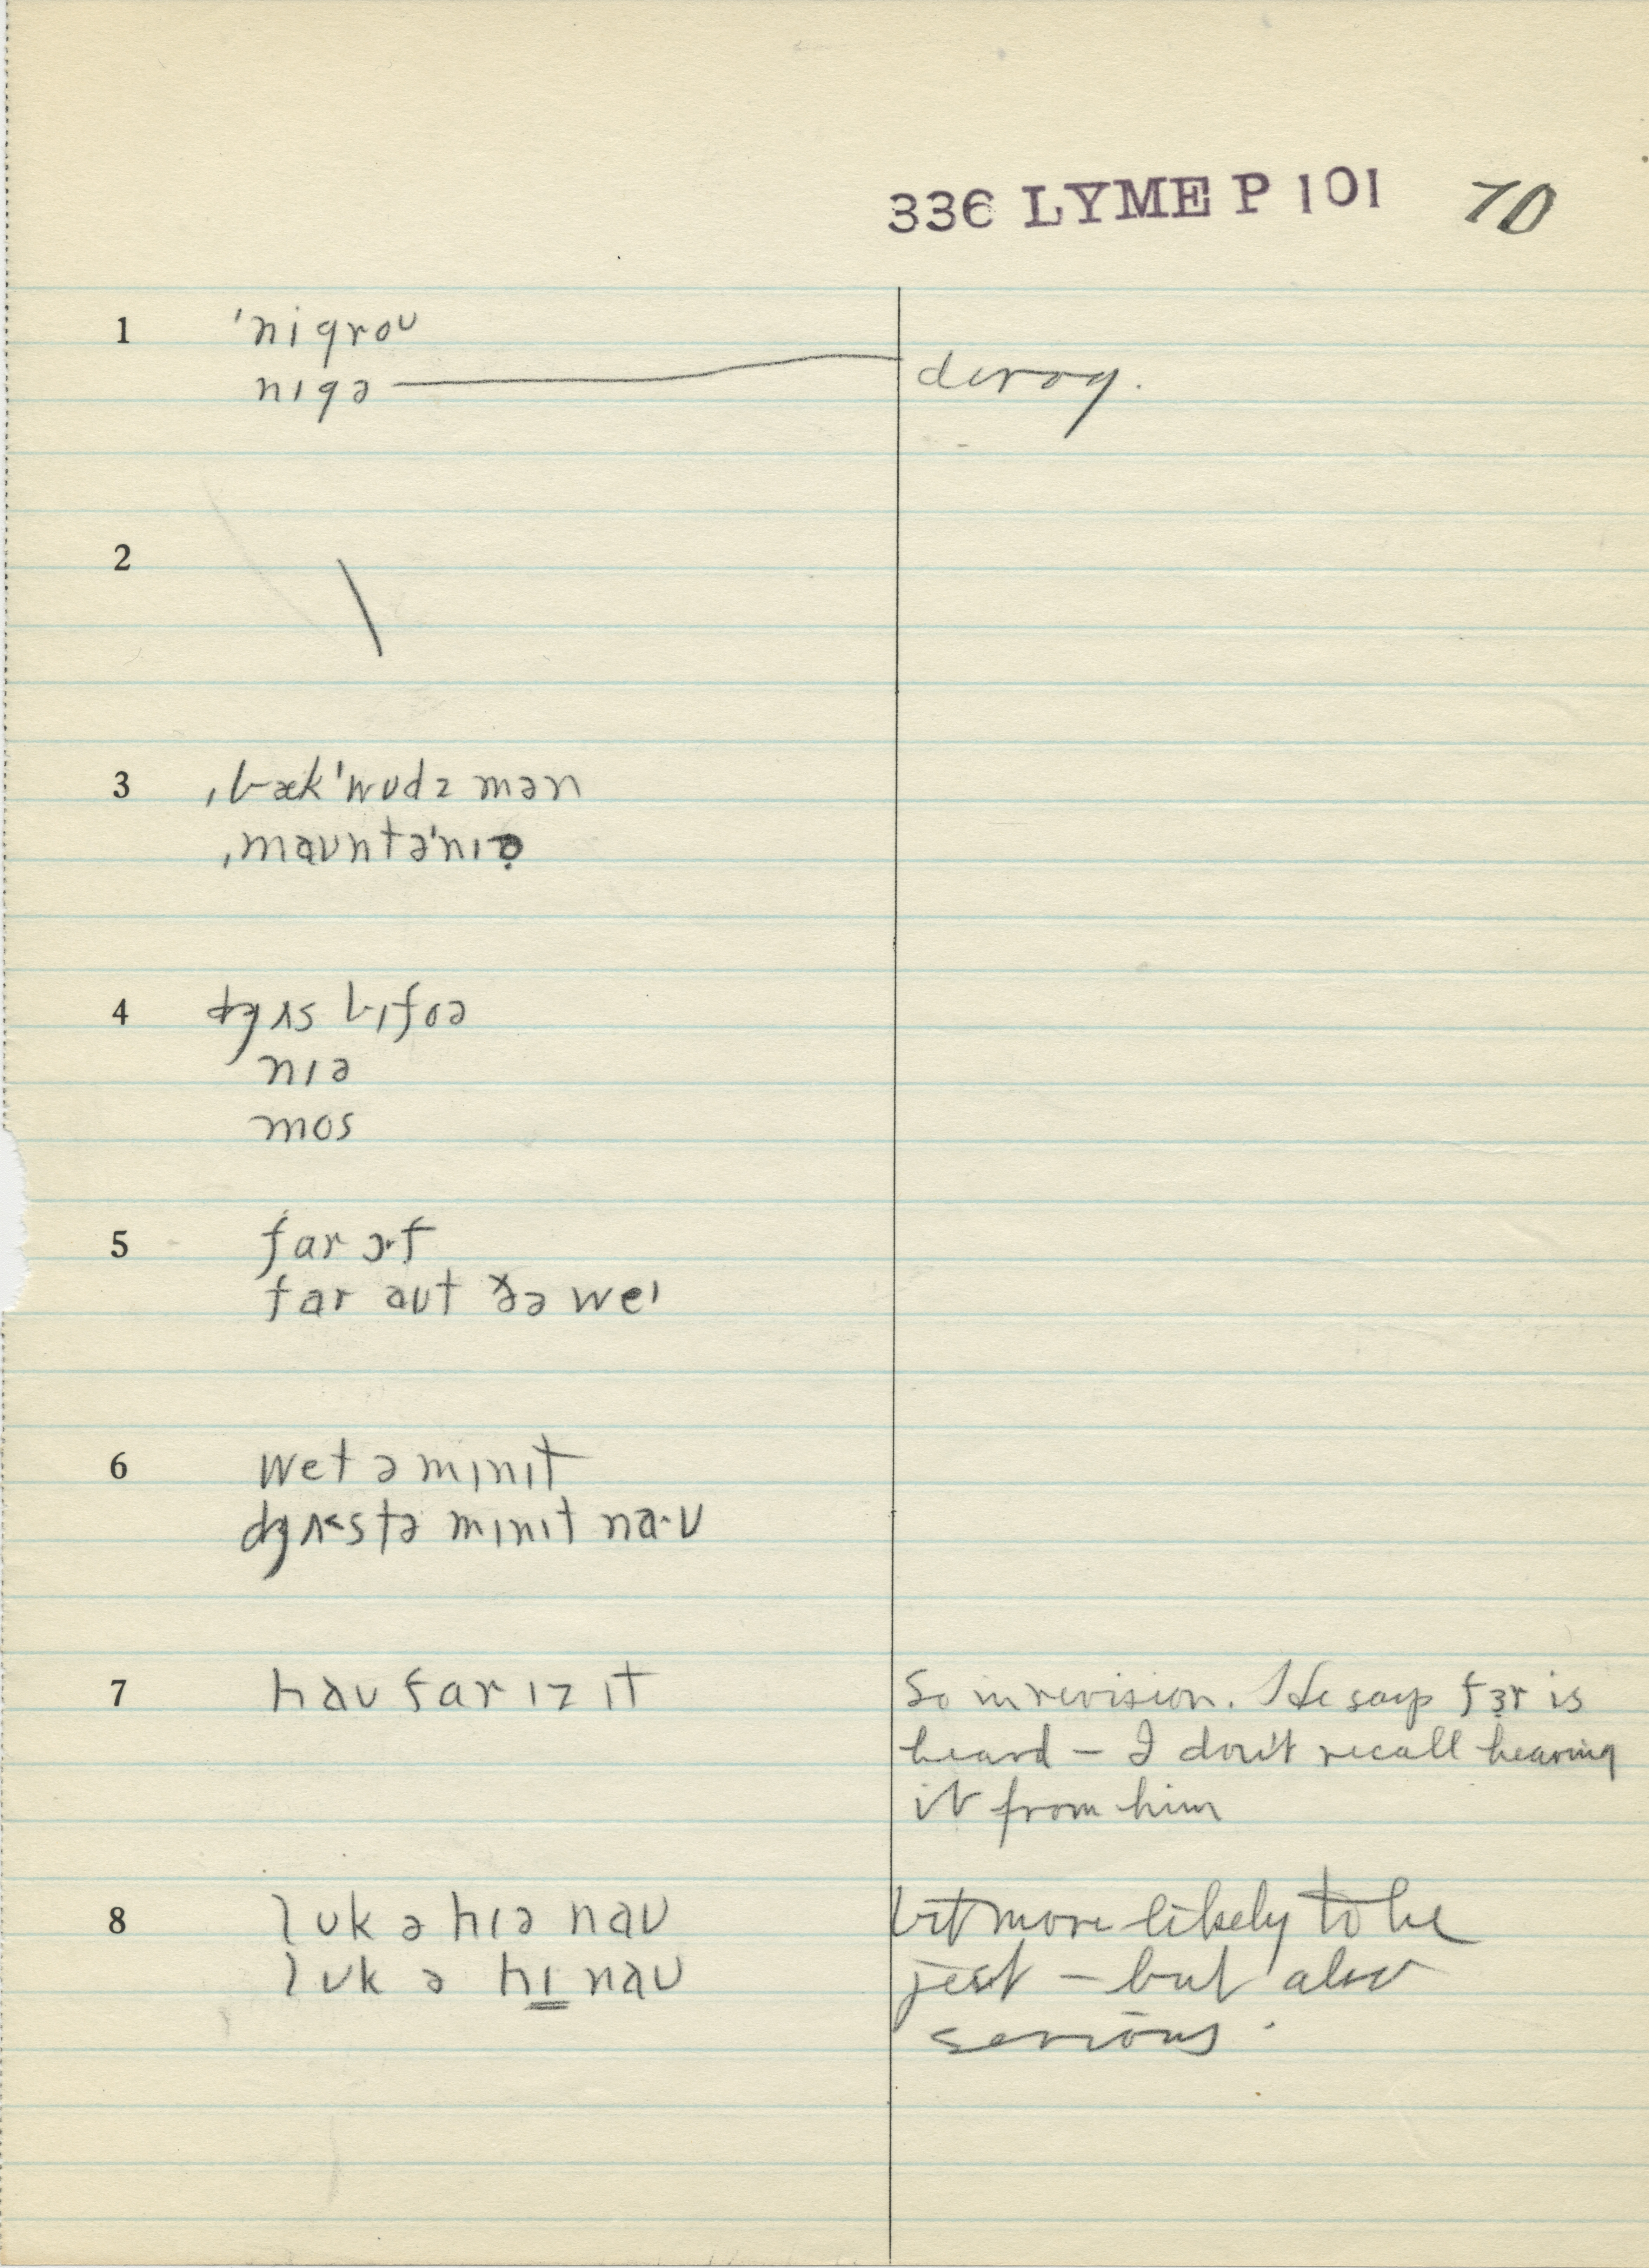 336 LYME P 101 70
1 ˈniɡroʊ
nɪɡə derog.
2
3 ˌbækˈwʊdz mən
ˌmaʊntəˈnɪə̣
4 dʒʌs bɪfoə
nɪə
mos
5 far ɔˑf
far aʊt ðə weɪ
6 wet ə mɪnɪt
dʒʌ˂stə mɪnɪt na·ʊ
7 haʊ far ɪz ɪt So in revision. He says fɜ̣r is
heard – I don't recall hearing
it from him
8 lʊk ə hɪə naʊ bit more likely to be
lʊk ə hɪ̳ naʊ jest – but also
serious.